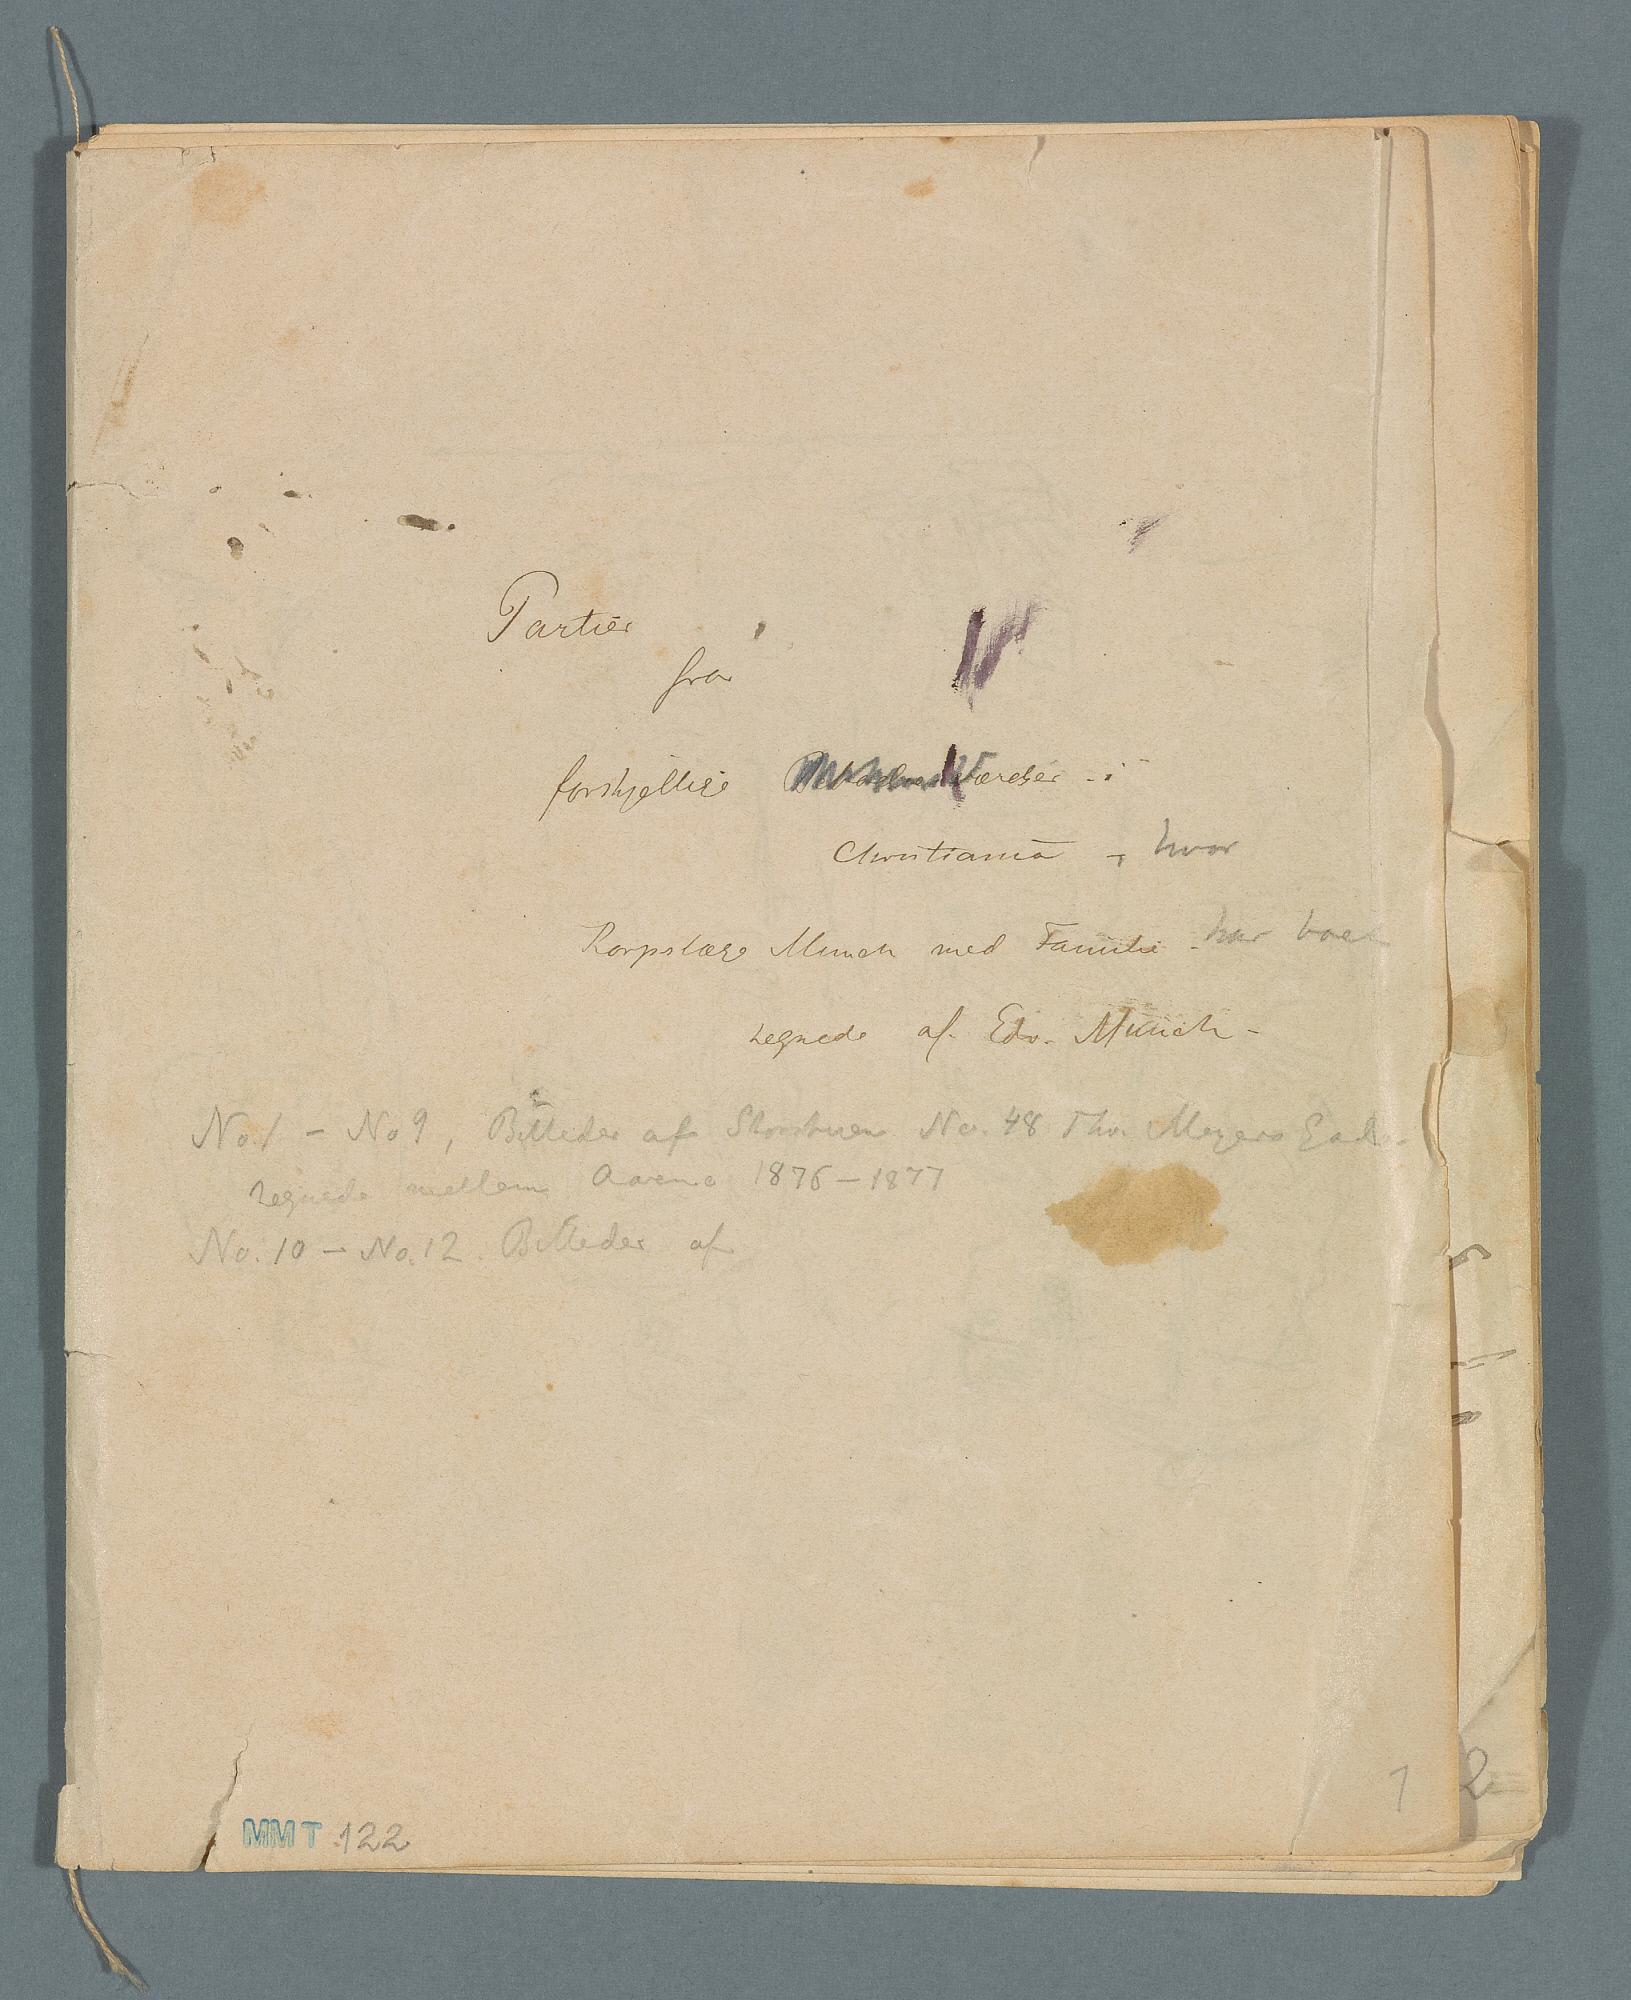 Partier
fra
forskjellige Værelser i
Christiania, hvor
Korpslæge Munch med Familie har boet
tegnede af Edv. Munch -
No. 1 - No 9, Billeder af Storstuen No. 48 Thv. Meyers Gade
tegnede mellem Aarene 1876-1877
No. 10 - No. 12. Billeder af
1
2
MMT 122